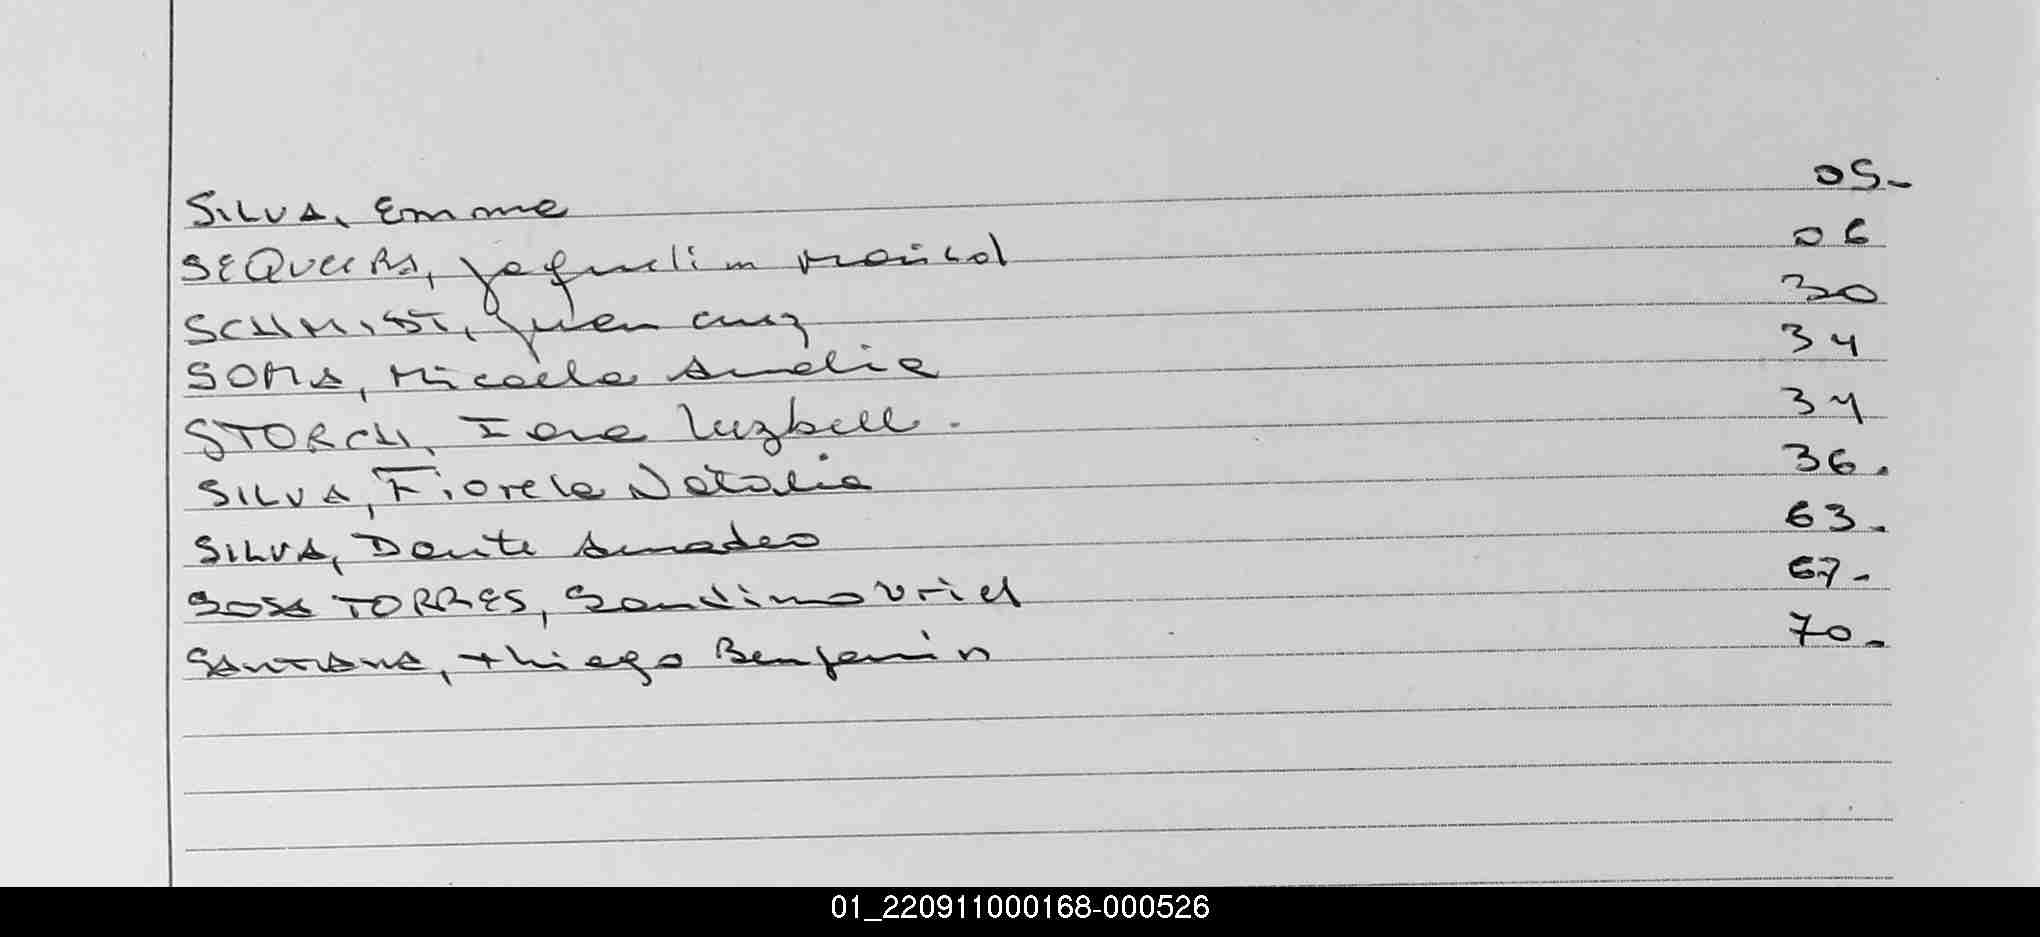 SILVA, Emma 05-
SEQUEIRA, Jaquelin Marisol 06
SCHMIDT, Juan Cruz 30
SOMA, Micaela Amelia 34
STORCH, Iara Luzbell. 34
SILVA, Fiorela Natalia 36.
SILVA, Dante Amadeo 63-
SOSA TORRES, Santino Uriel 67-
SANTANA, Thiago Benjamin 70-
01_220911000168-000526